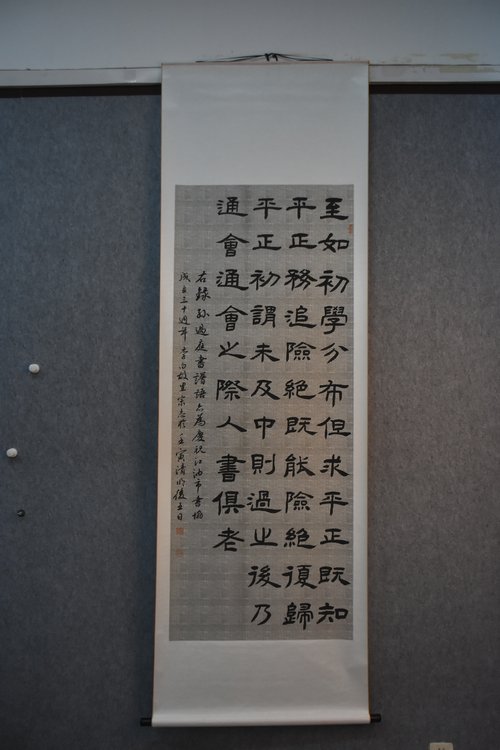 至如初學分布但求平正既知
平正務追險絕既能險絕復歸
平正初謂未及中則過之後乃
通會通會之際人書俱老
右錄孫過庭書譜語以為慶祝江油市書協
成立三十週年李白故里宗志於壬寅清明後五日